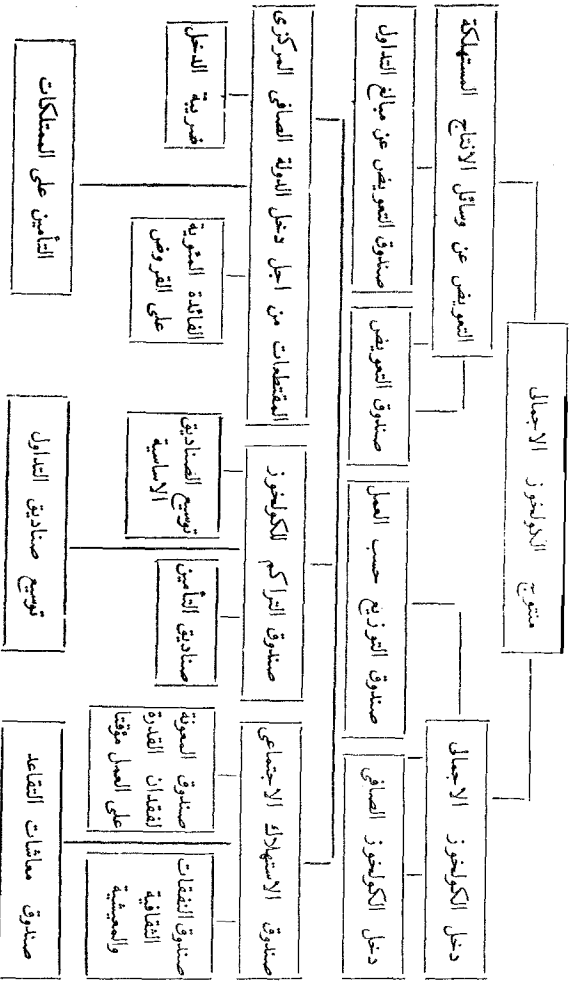 منتوج الكولخوز الاجمالى
التعويض عن وسائل الانتاج المستهلكة
دخل الكولخوز الاجمالى
صندوق التعويض عن مبالغ التداول
صندوق التعويض
صندوق التوزيع حسب العمل
دخل الكولخوز الصافى
المقتطعات من اجل دخل الدولة الصافى المركزى
صندوق التراكم للكولخوز
صندوق الاستهلاك الاجتماعى
ضريبة الدخل
الفائدة المئوية
على القروض
توسيع الصناديق
الاساسية
صناديق التأمين
صندوق المعونة
لفقدان القدرة
على العمل مؤقتا
صندوق النفقات
الثقافية
والمعيشية
التأمين على الممتلكات
توسيع صناديق التداول
صندوق معاشات التقاعد